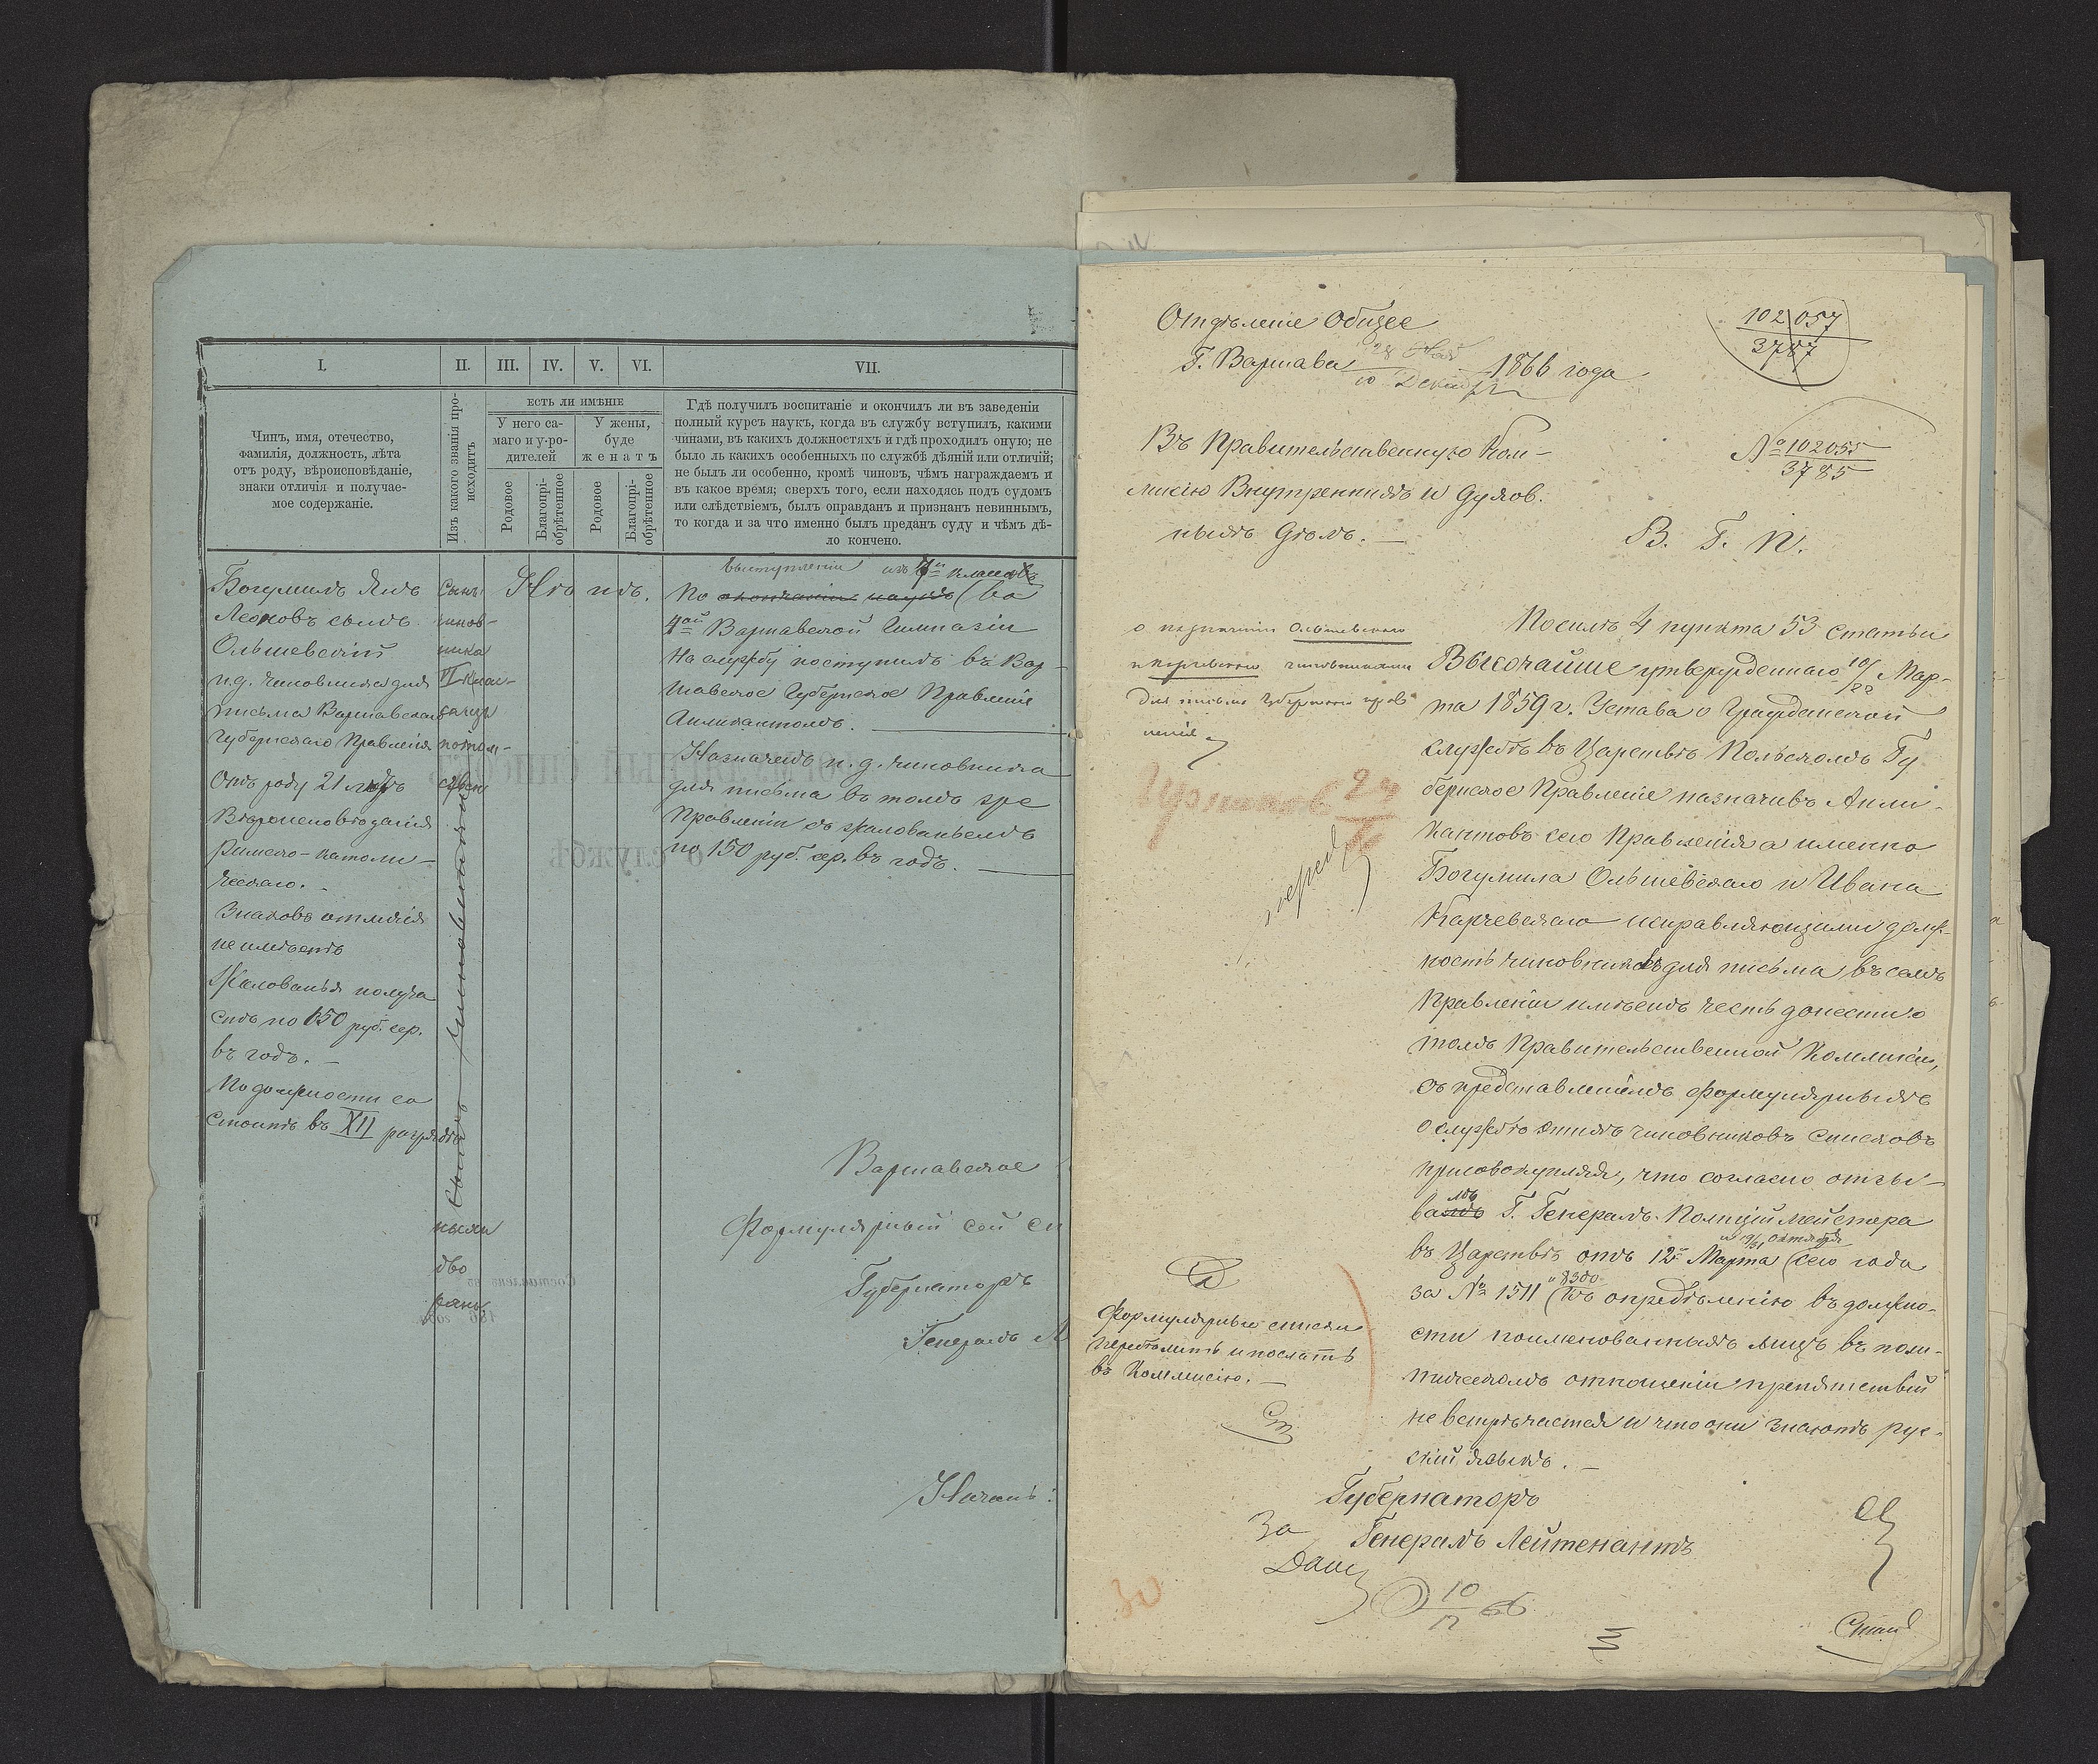 I.
II.
III.
IV.
V.
VI.
VII.
Чинъ, имя, отечество,
фамилія, должность, лѣта
отъ роду, вѣроисповѣданіе,
знаки отличія и получае-
мое содержаніе.
Изъ какого званія про-
исходитъ
ЕСТЬ ЛИ ИМѢНІЕ
У него са-
маго и у ро-
дителей
У жены,
буде
женатъ
Родовое
Благопрі-
обрѣтенное
Родовое
Благопрі-
обрѣтенное
Гдѣ получилъ воспитаніе и окончилъ ли въ заведеніи
полный курсъ наукъ, когда въ службу вступилъ, какими
чинами, въ какихъ должностяхъ и гдѣ проходилъ оную; не
было ль какихъ особенныхъ по службѣ дѣяній или отличій;
не былъ ли особенно, кромѣ чиновъ, чѣмъ награждаемъ и
въ какое время; сверхъ того, если находясь подъ судомъ
или слѣдствіемъ, былъ оправданъ и признанъ невиннымъ,
то когда и за что именно былъ преданъ суду и чѣмъ дѣ-
ло кончено.
Богумилъ Янъ
Леоновъ сынъ
Ольшевскій
и. д. чиновника для
письма Варшавскаго
Губернскаго Правленія
Отъ роду 21 лѣтъ
Вѣроисповѣданія
Римско-католи-
ческаго. -
Знаковъ отличія
не имѣетъ
Жалованья получа
етъ по 150 руб. сер.
въ годъ. -
По должности со
стоитъ въ XII разрядѣ
Сынъ
чинов-
ника
VI клас-
са изъ
потом-
ствен
ными
дво
рянъ.
Сынъ чиновника
Нѣтъ.
выступленіи изъ 7й класса
По окончаніи наукъ (во
4ой Варшавской Гимназіи
На службу поступилъ въ Вар-
шавское Губернское Правленіе
Апликантомъ.
Назначенъ и. д. чиновника
для письма въ томъ же
Правленіи съ жалованьемъ
по 150 руб. сер. въ годъ.
Варшавское
Формулярный сей сп
Губернаторъ
Генералъ Л
Началь
Отдѣленіе Общее
Г. Варшава 28 Ноя / 10 Декабря 1866 года
102057
3787
Въ Правительственную Ком-
мисію Внутреннихъ и Духов-
ныхъ Дѣлъ. —
№ 102055
3785
В. Г. П.
о назначеніи Ольшевскаго
и Карчевскаго чиновниками
для письма Губернскаго Прав
ленія
По силѣ 4 пункта 53 статьи
Высочайше утвержденнаго 10/22 Мар-
та 1859 г. Устава о Гражданской
службѣ въ Царствѣ Польскомъ Гу
бернское Правленіе назначивъ Апли-
кантовъ сего Правленія а именно
Богумила Ольшевскаго и Ивана
Карчевскаго исправляющими долж-
ность чиновниковъ для письма въ семъ
Правленіи имѣетъ честь донести о
томъ Правительственной Коммисіи,
съ представленіемъ формулярныхъ
о службѣ этихъ чиновниковъ списковъ
присовокупляя, что согласно отзы-
вамъ Г. Генералъ-Полиціймейстера
въ Царствѣ отъ 12 Марта и 19/31 Октября (сего года
за № 1511 и 8300 (къ опредѣленію въ должно-
сти поименованныхъ лицъ въ поли-
тическомъ отношеніи препятствій
не встрѣчается и что они знаютъ рус-
скій языкъ. —
Формулярные списки
перебѣлить и послать
въ Коммисію. —
Губернаторъ
За Генералъ Лейтенантъ
30